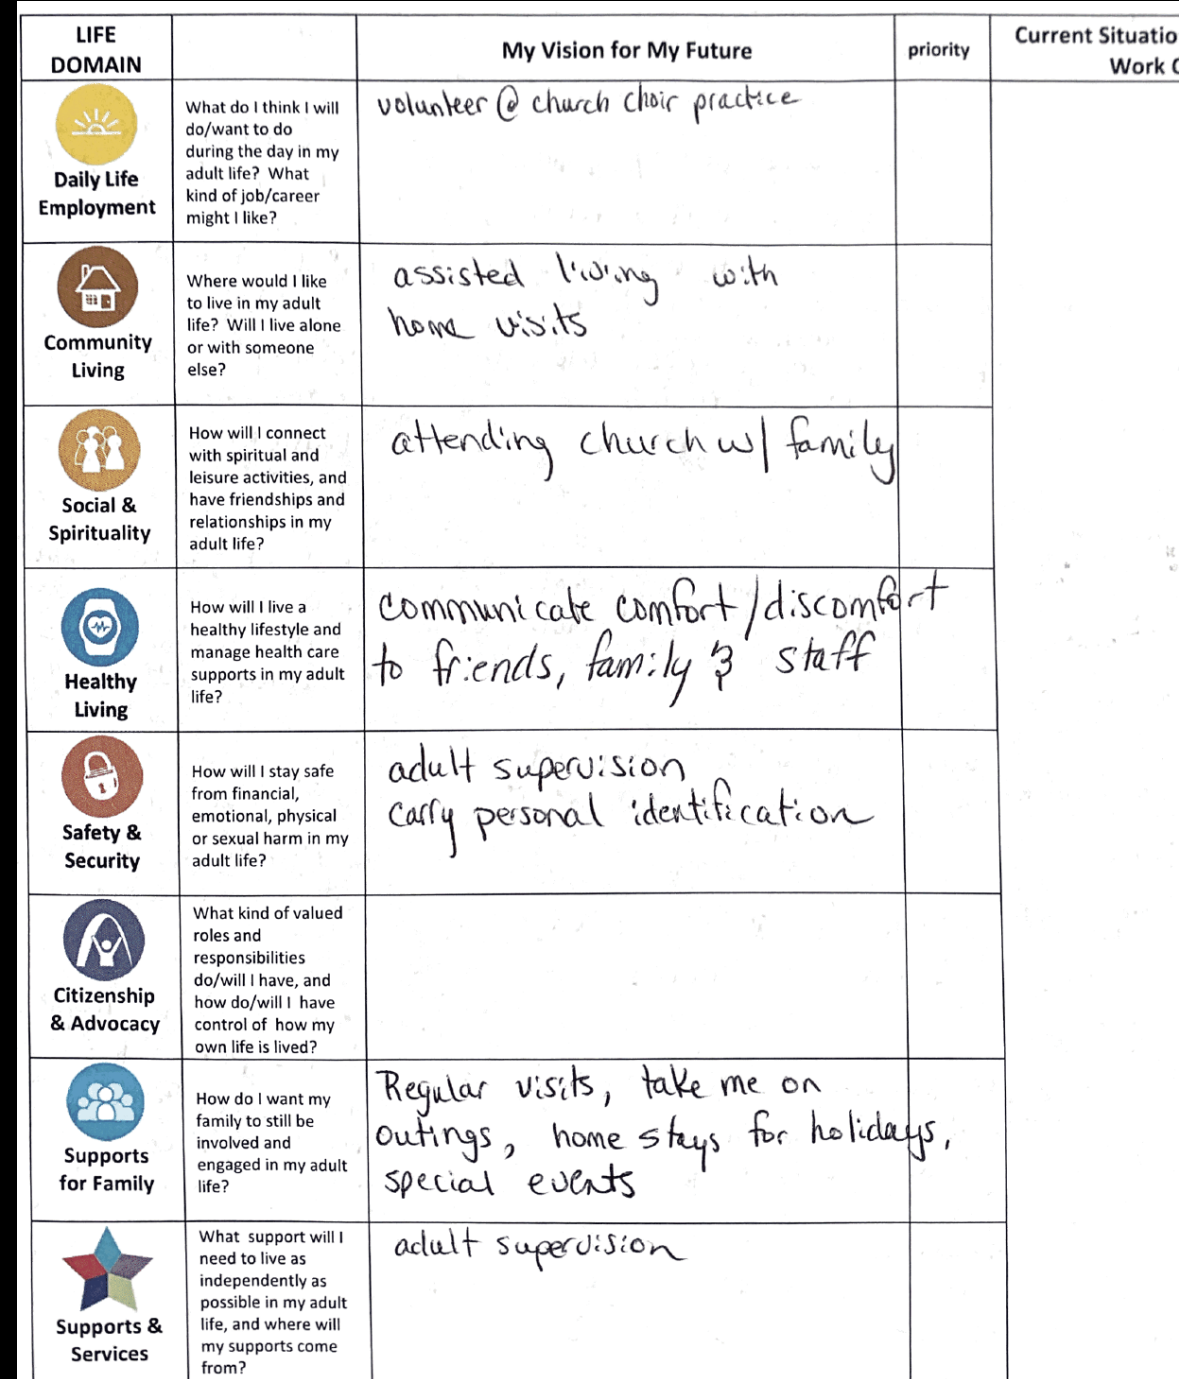 LIFE
DOMAIN
My Vision for My Future
priority
Current Situatio
Work
Daily Life
Employment
What do I think I will
do/want to do
during the day in my
adult life? What
kind of job/career
might I like?
volunteer @ church choir practice
Community
Living
Where would I like
to live in my adult
life? Will I live alone
or with someone
else?
assisted living with
home visits
Social &
Spirituality
How will I connect
with spiritual and
leisure activities, and
have friendships and
relationships in my
adult life?
attending church w/ family
Healthy
Living
How will I live a
healthy lifestyle and
manage health care
supports in my adult
life?
communicate comfort/discomfort
to friends, family & staff
Safety &
Security
How will I stay safe
from financial,
emotional, physical
or sexual harm in my
adult life?
adult supervision
carry personal identification
Citizenship
& Advocacy
What kind of valued
roles and
responsibilities
do/will I have, and
how do/will I have
control of how my
own life is lived?
Supports
for Family
How do I want my
family to still be
involved and
engaged in my adult
life?
Regular visits, take me on
outings, home stays for holidays,
special events
Supports &
Services
What support will I
need to live as
independently as
possible in my adult
life, and where will
my supports come
from?
adult supervision